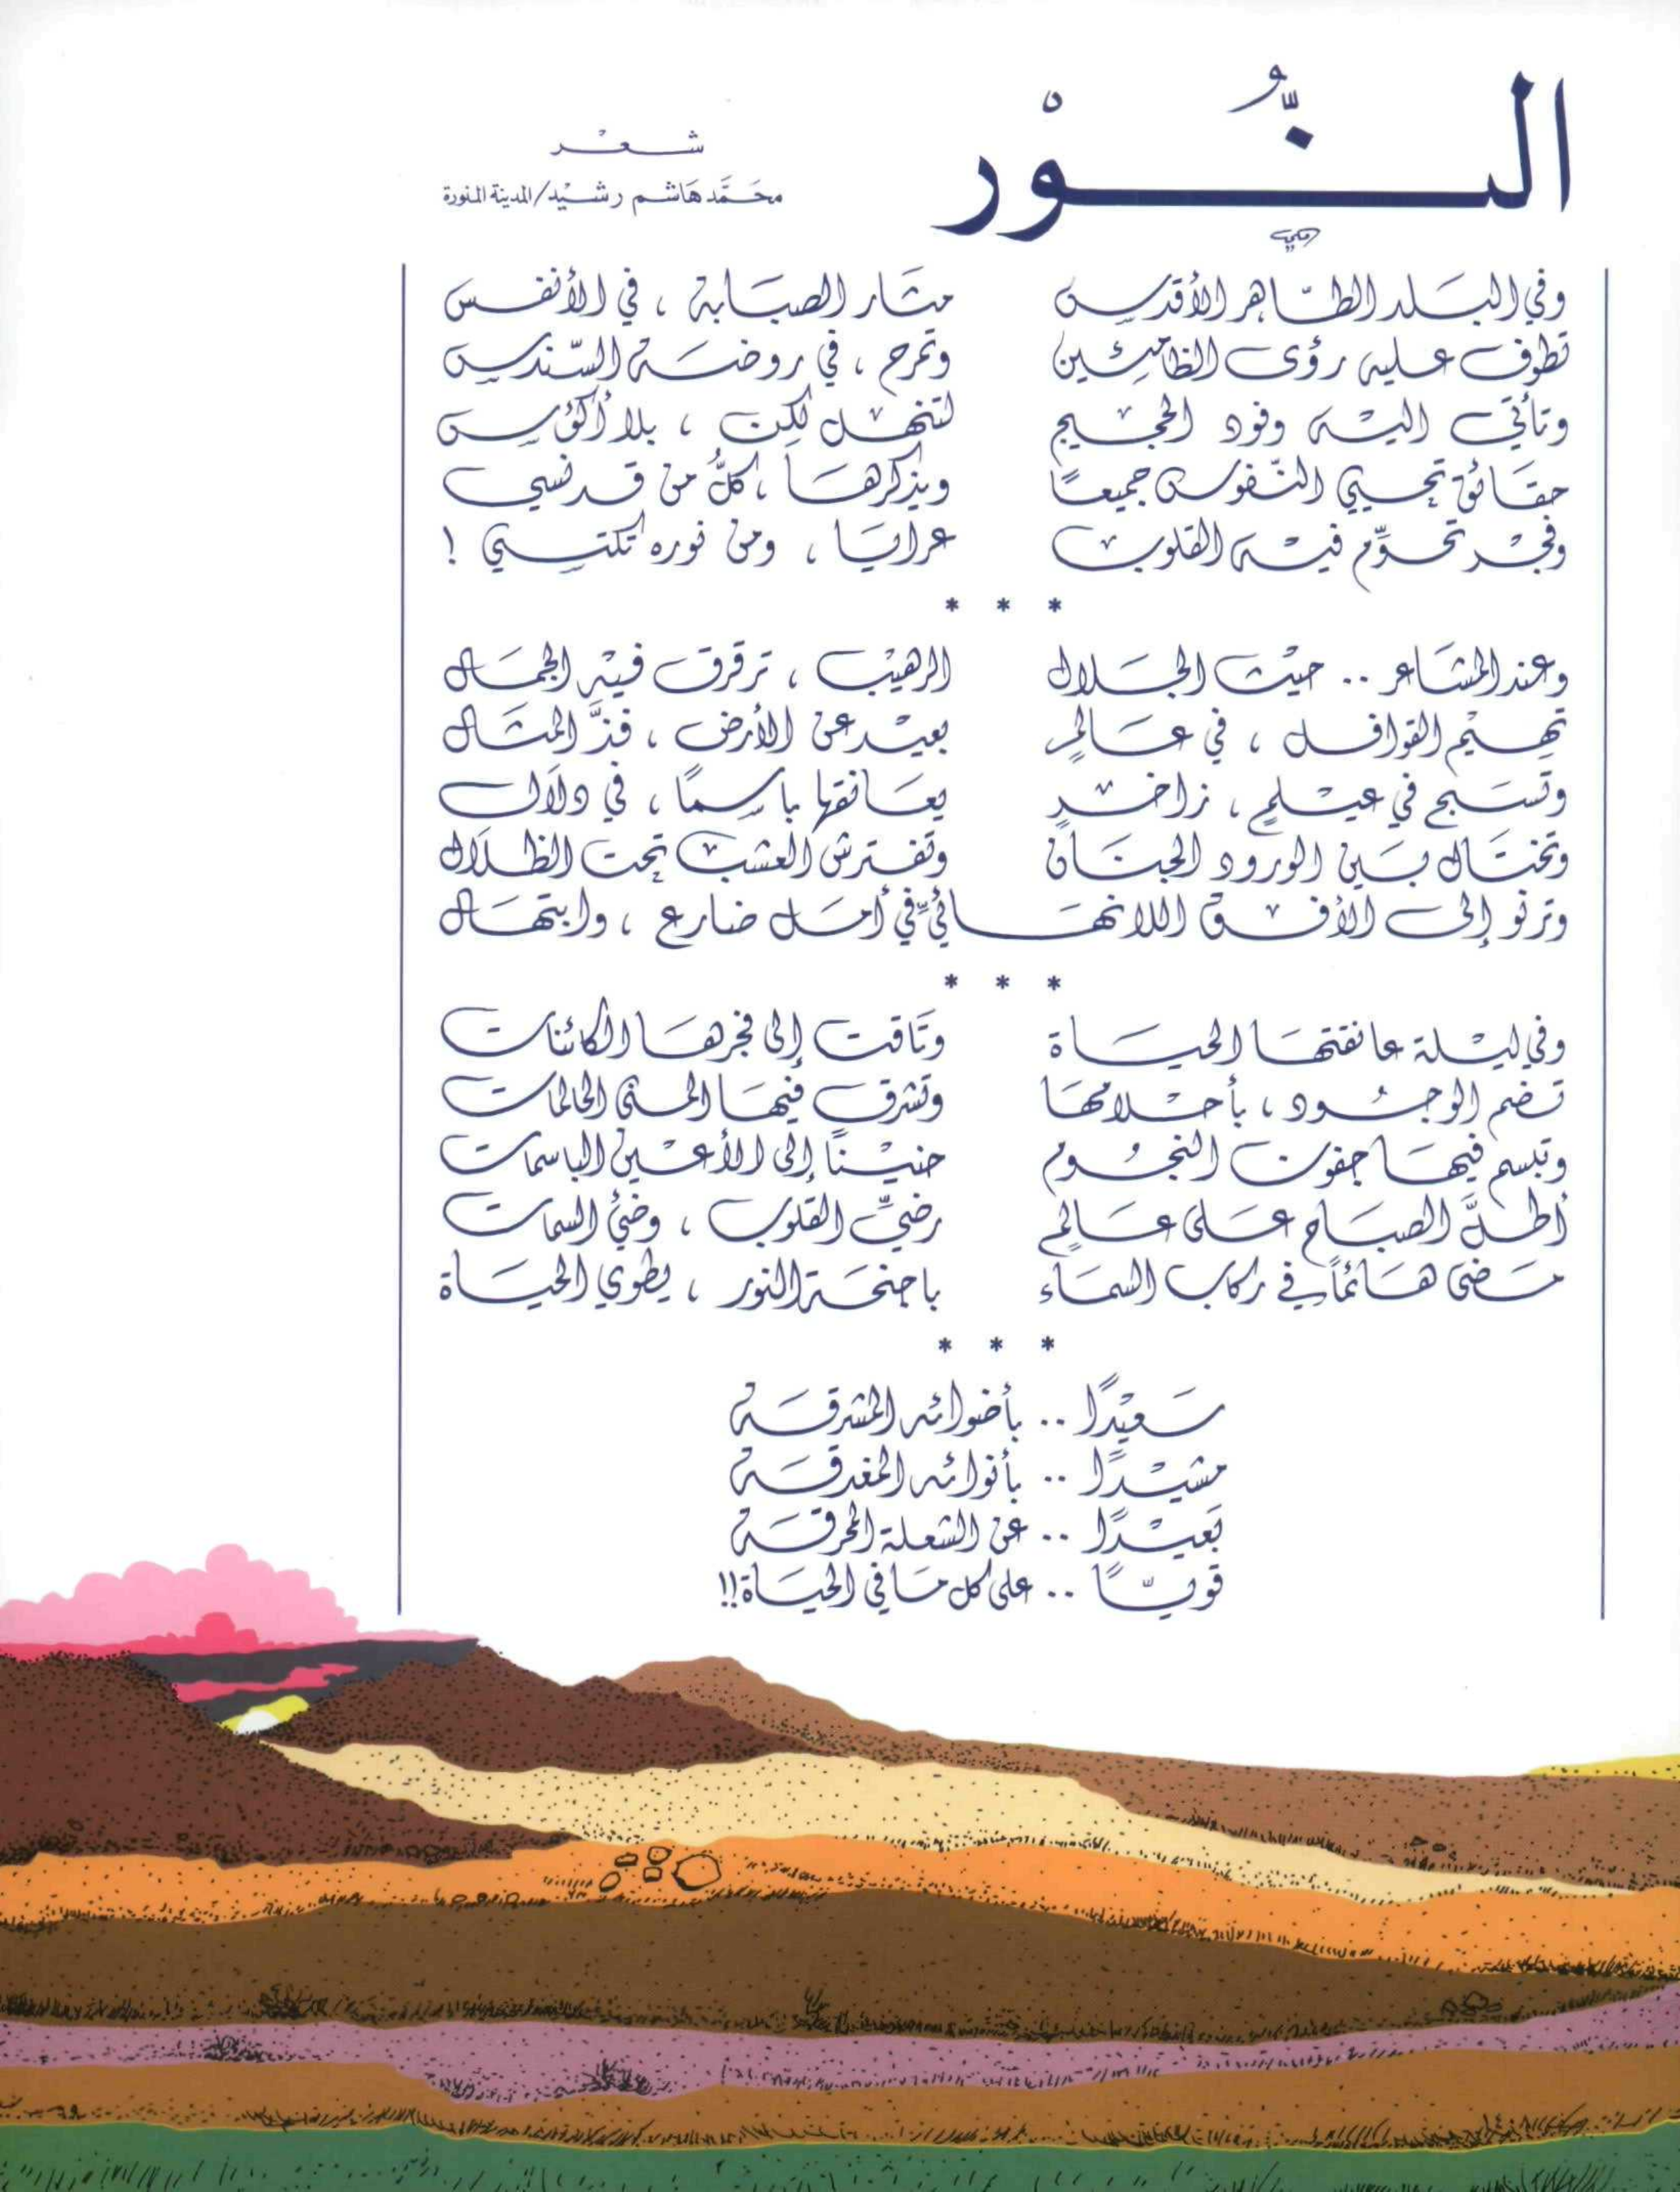 النُّوْر
شعْر
محَمَّد هَاشم رشيْد/المدينة المنورة
وفي البَلد الطّاهر الأقدس مثَار الصبَابة ، في الأنفس
تطوف عليه رؤى الظامئين وتمرح ، في روضة السّندس
وتأتي اليْه وفود الحجيج لتنهل لكن ، بلا أكؤس
حقَائق تحيي النّفوس جميعًا ويذكرهَا ، كلُّ من قد نسي
وفجْر تحوِّم فيْه القلوب عرايَا ، ومن نوره تكتسي !
* * *
وعند المشَاعر .. حيْث الجَلال الرهيْب ، ترقرق فيْه الجمَال
تهيْم القوافل ، في عَالمٍ بعيْد عن الأرض ، فذَّ المثَال
وتَسبح في عيْلمٍ ، زاخرٍ يعَانقها باسمًا ، في دلَال
وتختَال بَين الورود الجنَان وتفترش العشب تحت الظلَال
وترنو إلى الأفق اللانهَائيِّ في أمَل ضارع ، وابتهَال
* * *
وفي ليْلة عانقتهَا الحيَاة وتَاقت إلى فجرهَا الكائنات
تضم الوجُود ، بأحْلامهَا وتشرق فيهَا المنى الحالمات
وتبسم فيهَا جفون النجُوم حنيْنًا إلى الأعْين الباسمات
أطلَّ الصبَاح عَلى عَالمٍ رضيِّ القلوب ، وضئ السمات
مَضى هَائماً في ركاب السمَاء باجنحَة النور ، يطوي الحيَاة
* * *
سَعيْدًا .. بأضوائه المشرقَة
مشيْدًا .. بأنوائه المغدقَة
بَعيْدًا .. عن الشعلة المحرقَة
قويًّا .. على كل مَا في الحيَاة!!